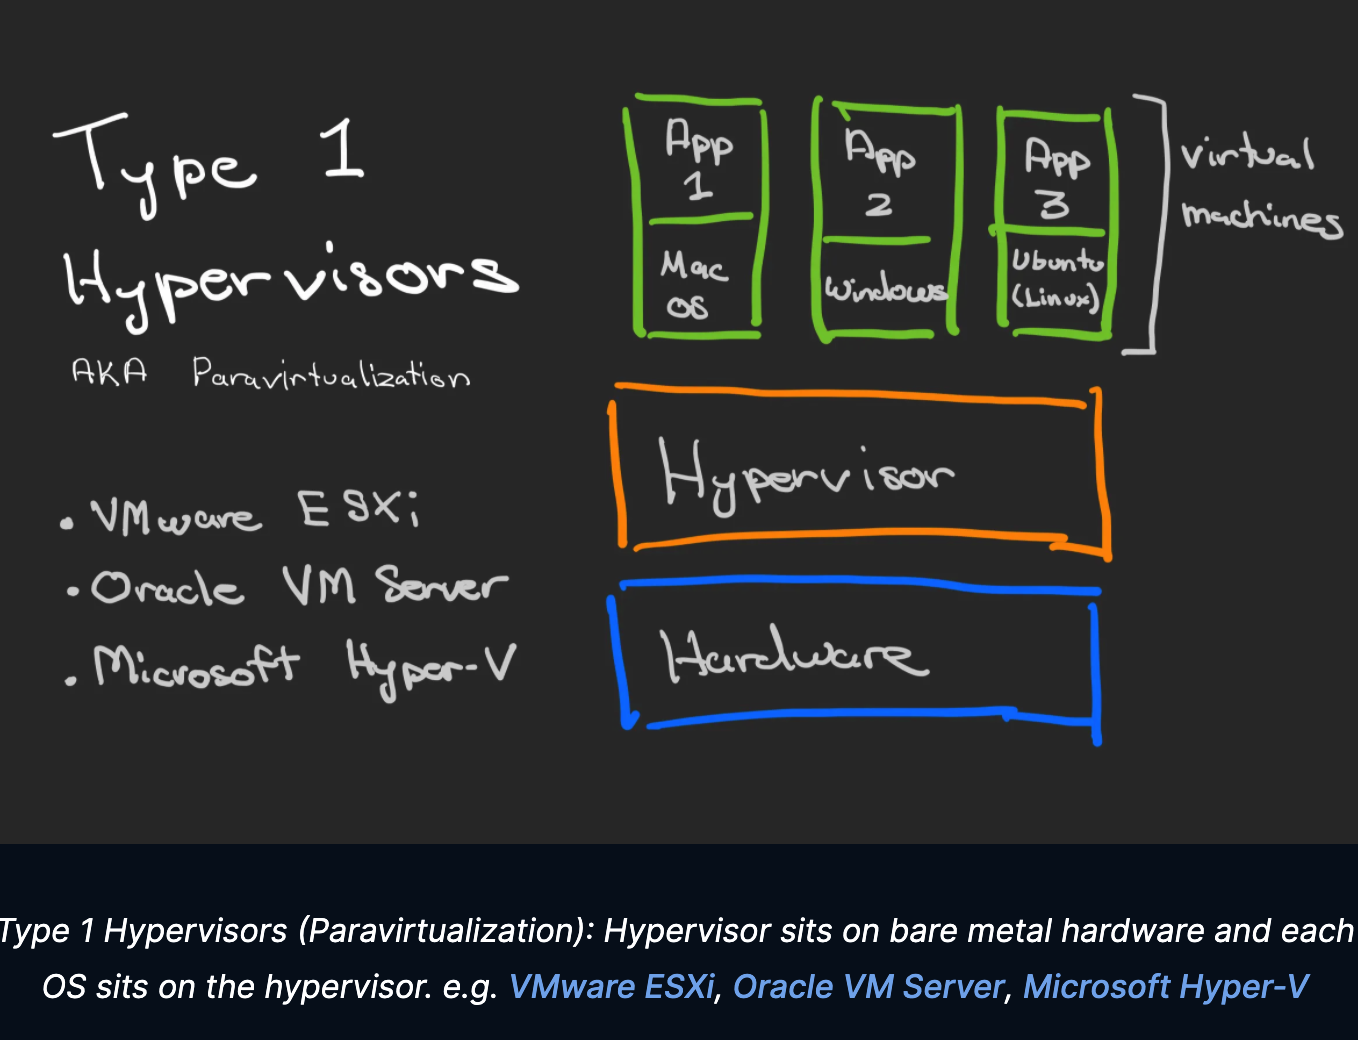 Type 1
Hypervisors
AKA Paravirtualization
• VMware ESXi
• Oracle VM Server
• Microsoft Hyper-V
App
1
Mac
OS
App
2
Windows
App
3
Ubuntu
(Linux)
virtual
machines
Hypervisor
Hardware
Type 1 Hypervisors (Paravirtualization): Hypervisor sits on bare metal hardware and each
OS sits on the hypervisor. e.g. VMware ESXi, Oracle VM Server, Microsoft Hyper-V